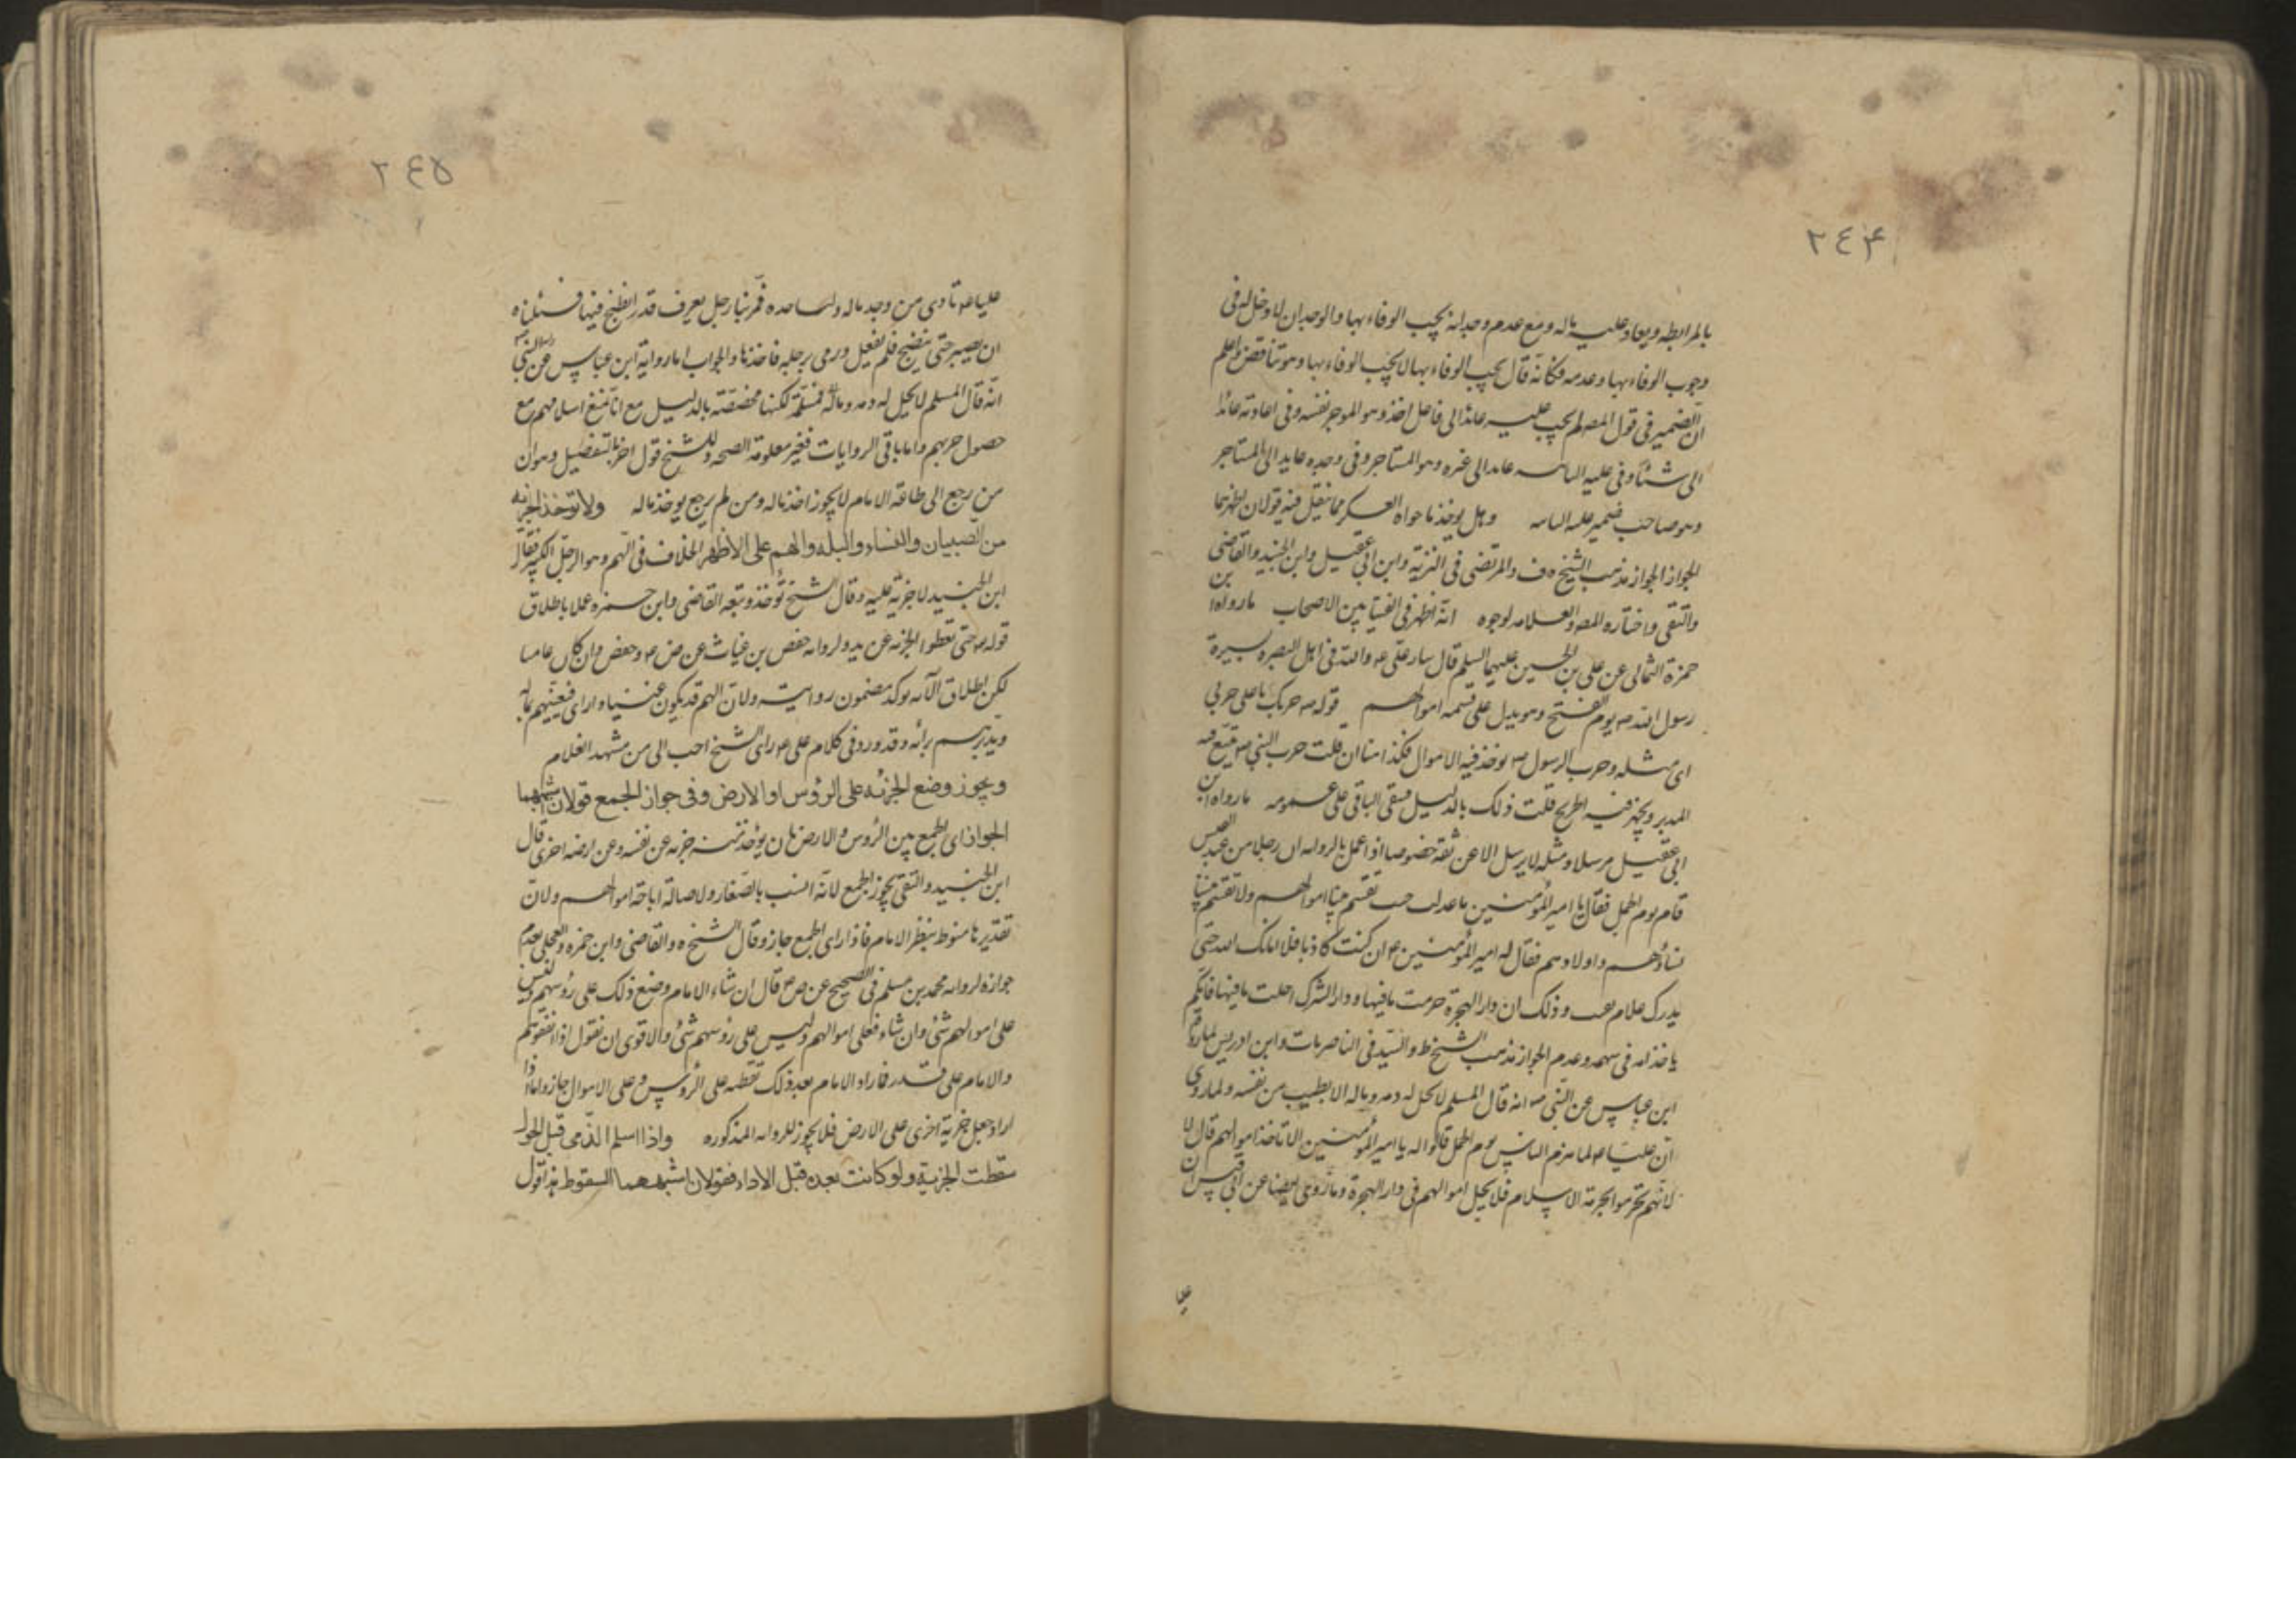 ٢٤٤
بالمرابطه ويعاد عليه ماله ومع عدم وجدانه يجب الوفاء بها والوجدان لا دخل له فى
وجوب الوفاء بها وعدمه فكانه قال يجب الوفاء بها لا يجب الوفاء بها وهو تناقض واعلم
ان الضمير فى قول المصه لم يجب عليه عائد الى فاعل اخذ وهو الموجر نفسه وفى اعادته عائد
الى شئا وفى عليه الثانيه عايد الى غيره وهو المستاجر وفى وجده عايد الى المستاجر
وهو صاحب ضمير عليه الثانيه وهل يوخذ ما حواه العسكر مما ينقل فيه قولان اظهرهما
الجواز الجواز مذهب الشيخ ره ف والمرتضى فى العزية وابن ابى عقيل وابن الجنيد والقاضى
والتقى واختاره المصه والعلامه لوجوه انه اظهر فى الفتيا بين الاصحاب مارواه ابن
حمزة الثمالى عن على بن الحسين عليهما السلم قال سار على ع والله فى اهل البصره بسيرة
رسول الله ص يوم الفتح وهو يدل على قسمه اموالهم قوله ص حربك يا على حربى
اى مثله وحرب الرسول ص يوخذ فيه الاموال فكذا هنا ان قلت حرب النبى ص يتبع فيه
المدبر ويجهز فيه الجريح قلت ذلك بالدليل فيبقى الباقى على عمومه مارواه ابن
ابى عقيل مرسلا ومثله لا يرسل الا عن ثقه خصوصا اذا عمل بالروايه ان رجلا من عبد القيس
قام يوم الجمل فقال يا امير المؤمنين ما عدلت حيث تقسم بيننا اموالهم ولا تقسم بيننا
نساؤهم واولادهم فقال له امير المؤمنين ع ان كنت كاذبا فلا اماتك الله حتى
يدرك غلام ثقيف وذلك ان دار الهجرة حرمت ما فيها ودار الشرك احلت ما فيها فايكم
ياخذ امه فى سهمه وعدم الجواز مذهب الشيخ ط والسيد فى الناصريات وابن ادريس لما رواه
ابن عباس عن النبى ص انه قال المسلم لا يحل له دمه وماله الا بطيب من نفسه ولما روى
ان عليا ع لما هزم الناس يوم الجمل قالوا له يا امير المؤمنين الا تاخذ اموالهم قال لا
لانهم تحرموا بحرمة الاسلام فلا يحل اموالهم فى دار الهجرة وما روى ايضا عن ابى قيس ان
٢٤٥
عليا ع نادى من وجد ماله فله اخذه فمر بنا رجل يعرف قدر انطبخ فيها فسئلناه
ان يصبر حتى ينضج فلم يفعل ورمى برجله فاخذها والجواب اما رواية ابن عباس عن النبى
انه قال المسلم لا يحل له دمه وماله فمسلمة لكنها مخصصة بالدليل مع انا نمنع اسلامهم مع
حصول حربهم واما باقى الروايات فغير معلومة الصحه وللشيخ قول اخر بالتفصيل وهو ان
من رجع الى طاعة الامام لا يجوز اخذ ماله ومن لم يرجع يوخذ ماله ولا توخذ الجزيه
من الصبيان والنساء والبله والهم على الاظهر الخلاف فى الهم وهو الرجل الكبير فقال
ابن الجنيد لا جزية عليه وقال الشيخ تؤخذ وتبعه القاضى وابن حمزه عملا باطلاق
قوله تع حتى تعطوا الجزيه عن يد ولروايه حفص بن غياث عن ص ع وحفص وان كان عاميا
لكن اطلاق الايه يوكد مضمون روايته ولان الهم قد يكون غنيا واراى فيعينهم بماله
ويدبرهم برايه وقد ورد فى كلام على ع راى الشيخ احب الى من مشهد الغلام
ويجوز وضع الجزيه على الرؤس او الارض وفى جواز الجمع قولان اشبههما
الجواز اى الجمع بين الرؤس والارض بان يؤخذ منه جزيه عن نفسه وعن ارضه اخرى قال
ابن الجنيد والتقى يجوز الجمع لانه انسب بالصغار ولاصالة اباحة اموالهم ولان
تقديرها منوط بنظر الامام فاذا راى الجمع جاز وقال الشيخ ره والقاضى وابن حمزه والعجلى بعدم
جوازه لروايه محمد بن مسلم فى الصحيح عن ص ع قال ان شاء الامام وضع ذلك على رؤسهم وليس
على اموالهم شئ وان شاء فعلى اموالهم وليس على رؤسهم شئ والاقوى ان نقول اذا اتفقوا هم
والامام على قدر فاراد الامام بعد ذلك تقسطه على الرؤس وعلى الاموال جاز واما اذا
اراد جعل جزية اخرى على الارض فلا يجوز للروايه المذكوره واذا اسلم الذمى قبل الحول
سقطت الجزية ولو كانت بعده قبل الاداء فقولان اشبههما السقوط هذا قول